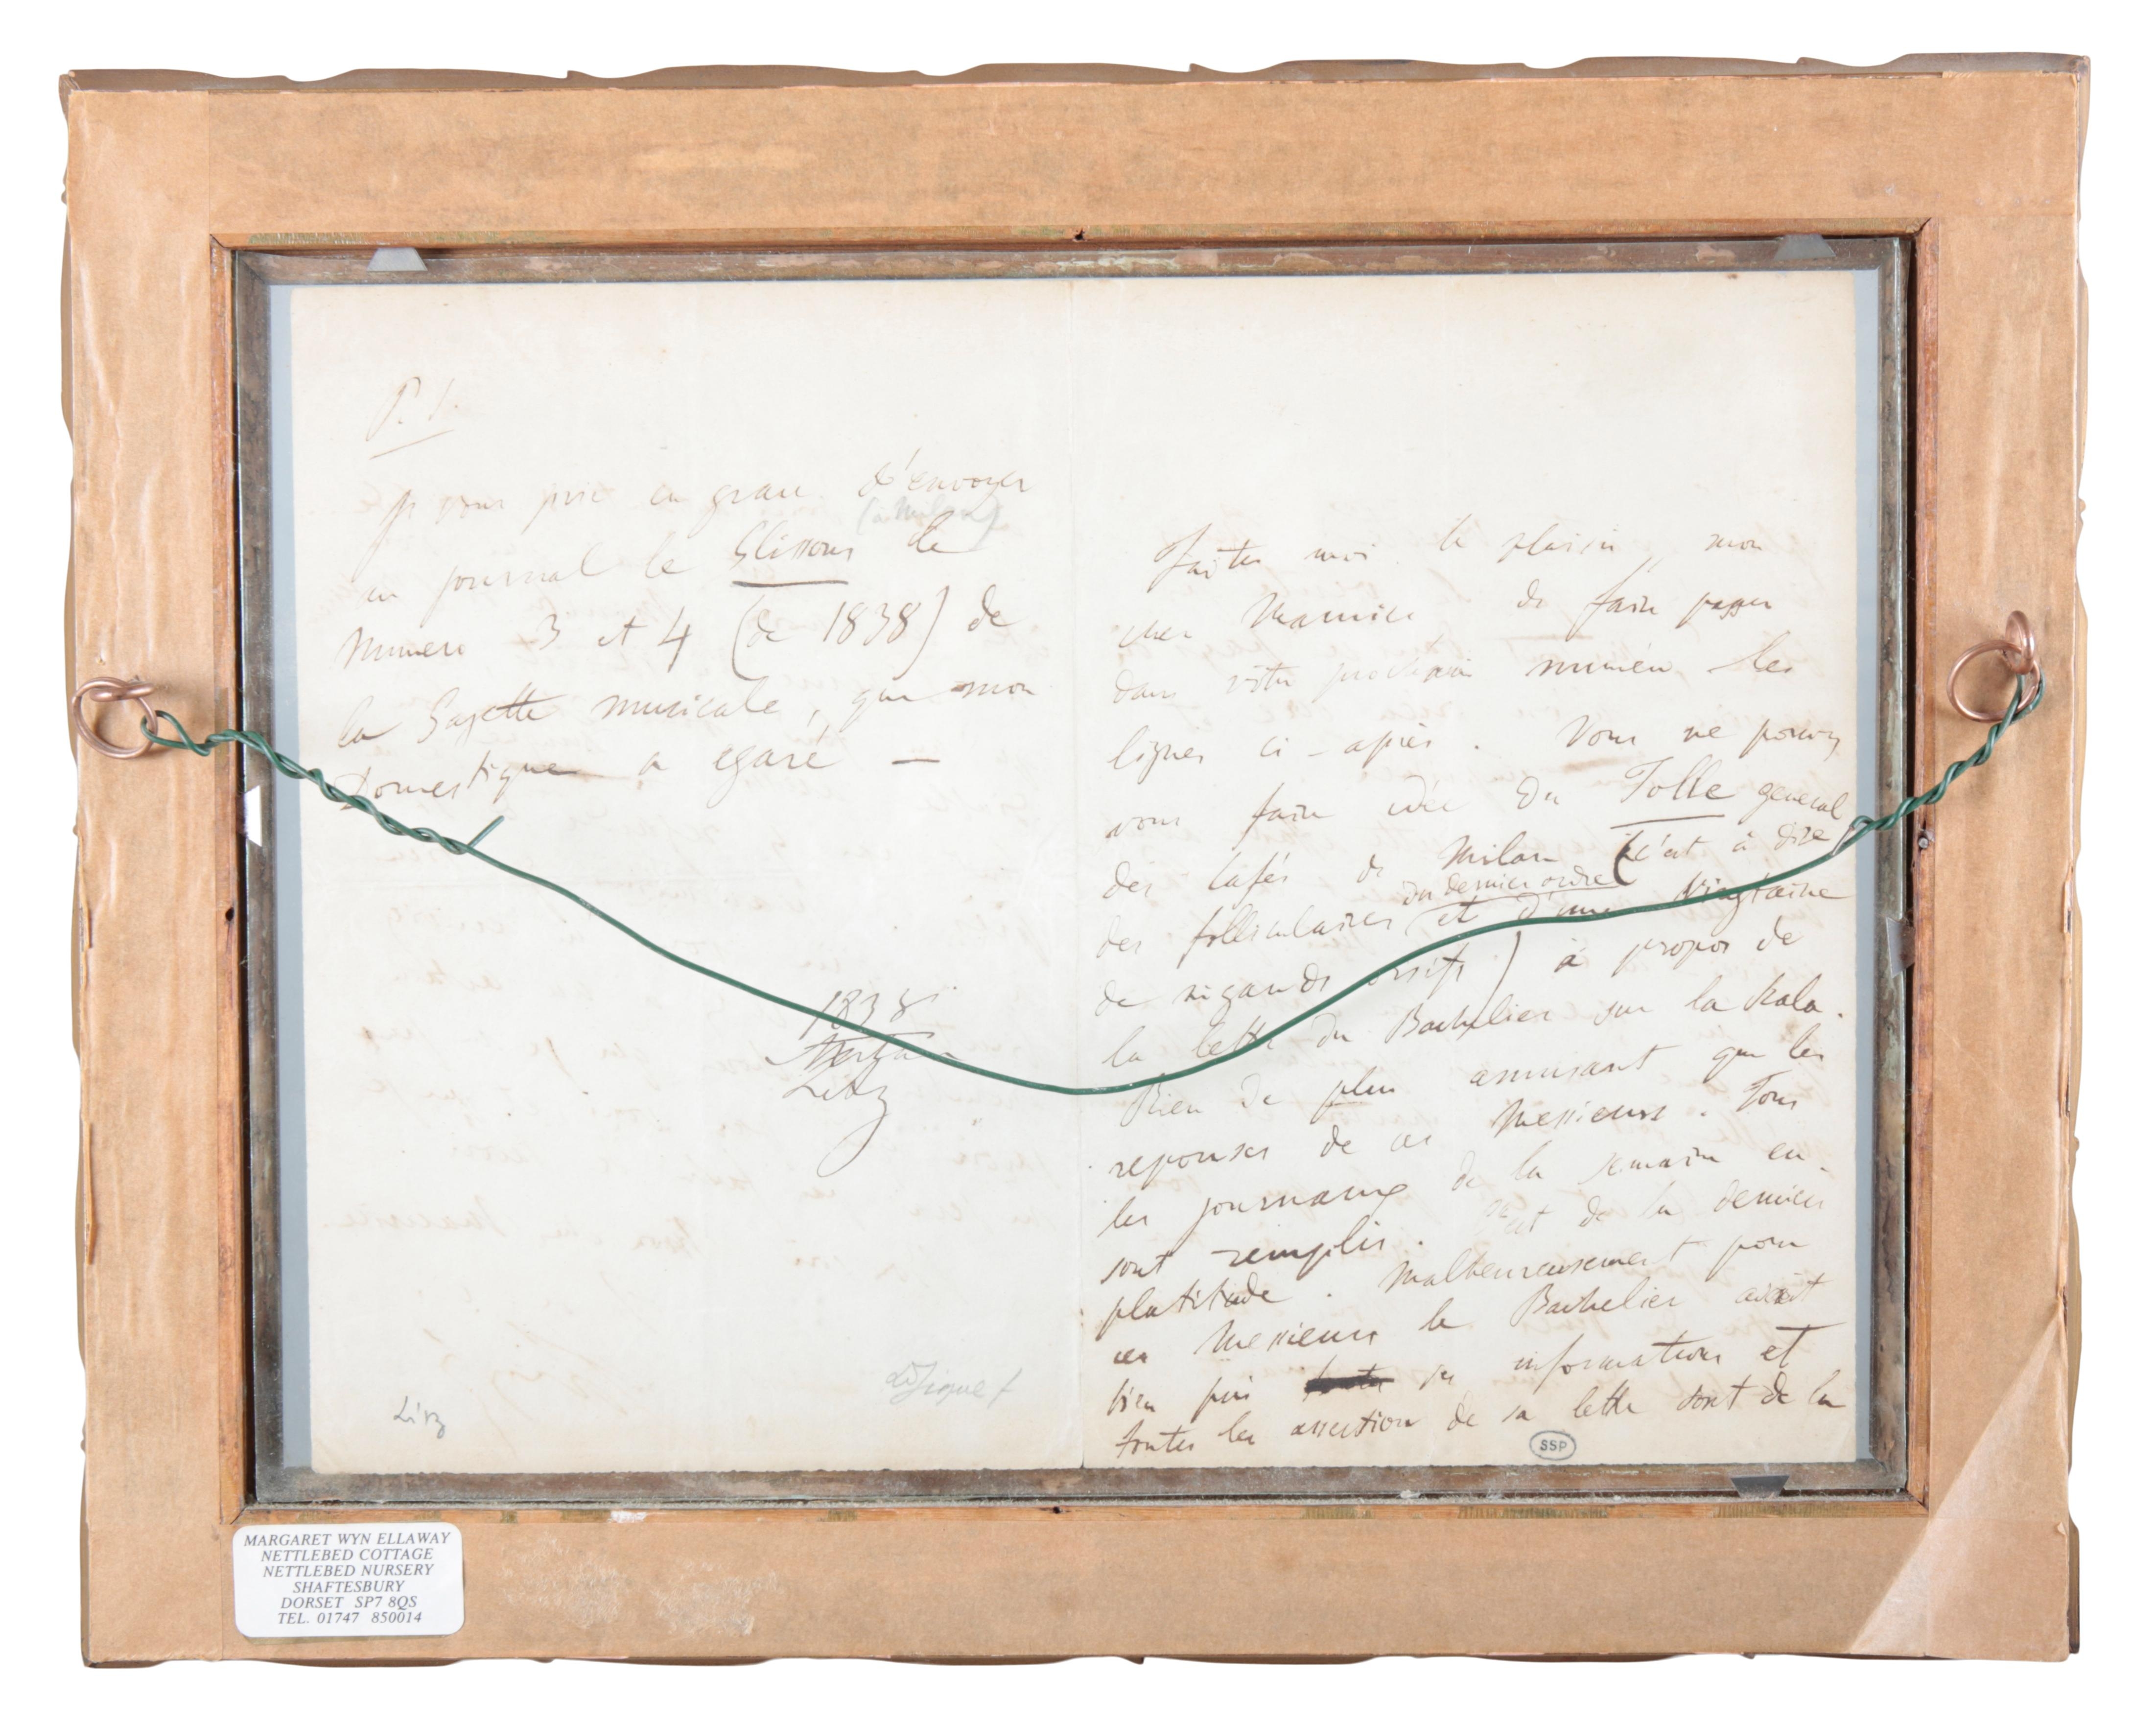 P. S.
Je vous prie en grace d'envoyer
(à Milan)
au journal le Glissons le
Numero 3 et 4 (de 1838) de
la Gazette musicale, que mon
Domestique a egaré —
1838
Litz
Litz
Faites moi le plaisir, mon
cher Maurice de faire passer
dans votre prochain numéro les
lignes ci-après. Vous ne pouvez
vous faire idée du Tolle general
des Cafés de Milan (c'est à dire
du dernier ordre
des folliculaires et d'une vingtaine
de nigauds oisifs) à propos de
la lettre du Bachelier sur la Scala.
Rien de plus amusant que les
reponses de ces Messieurs. Tous
les journaux de la semaine en
sont remplis. C'est de la derniere
platitude. Malheureusement pour
ces Messieurs le Bachelier avait
bien pris ses informations et
toutes les assertions de sa lettre sont de la
SSP
MARGARET WYN ELLAWAY
NETTLEBED COTTAGE
NETTLEBED NURSERY
SHAFTESBURY
DORSET SP7 8QS
TEL. 01747 850014